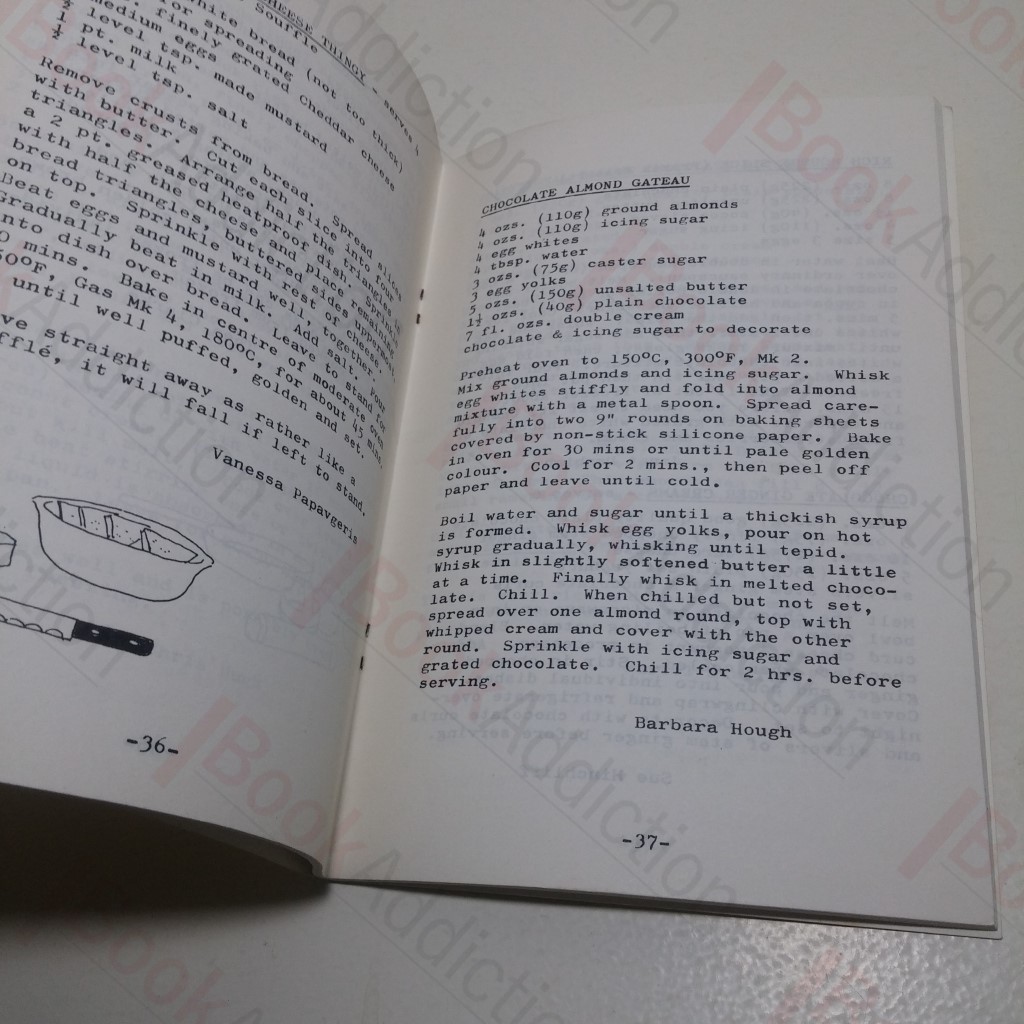 CHEESE THINGY - serves 4
Souffle
white bread (not too thick)
for spreading
finely grated Cheddar cheese
medium eggs
level tsp. made mustard
pt. milk
level tsp. salt
Remove crusts from bread. Spread slices
with butter. Cut each slice into four
triangles. Arrange half the triangles in
a 2 pt. greased heatproof dish, sprinkle
with half the cheese and place remaining
bread triangles, buttered sides uppermost,
on top. Sprinkle with rest of cheese.
Beat eggs and mustard well, together.
Gradually beat in milk. Add salt, pour
into dish over bread. Leave to stand for
0 mins. Bake in centre of moderate oven
50°F, Gas Mk 4, 180°C, for about 45 mins.
until well puffed, golden and set.
ve straight away as rather like a
fflé, it will fall if left to stand.
Vanessa Papavgeris
-36-
CHOCOLATE ALMOND GATEAU
4 ozs. (110g) ground almonds
4 ozs. (110g) icing sugar
4 egg whites
4 tbsp. water
3 ozs. (75g) caster sugar
3 egg yolks
5 ozs. (150g) unsalted butter
1½ ozs. (40g) plain chocolate
7 fl. ozs. double cream
chocolate & icing sugar to decorate
Preheat oven to 150°C, 300°F, Mk 2.
Mix ground almonds and icing sugar. Whisk
egg whites stiffly and fold into almond
mixture with a metal spoon. Spread care-
fully into two 9" rounds on baking sheets
covered by non-stick silicone paper. Bake
in oven for 30 mins or until pale golden
colour. Cool for 2 mins., then peel off
paper and leave until cold.
Boil water and sugar until a thickish syrup
is formed. Whisk egg yolks, pour on hot
syrup gradually, whisking until tepid.
Whisk in slightly softened butter a little
at a time. Finally whisk in melted choco-
late. Chill. When chilled but not set,
spread over one almond round, top with
whipped cream and cover with the other
round. Sprinkle with icing sugar and
grated chocolate. Chill for 2 hrs. before
serving.
Barbara Hough
-37-
Book Addiction